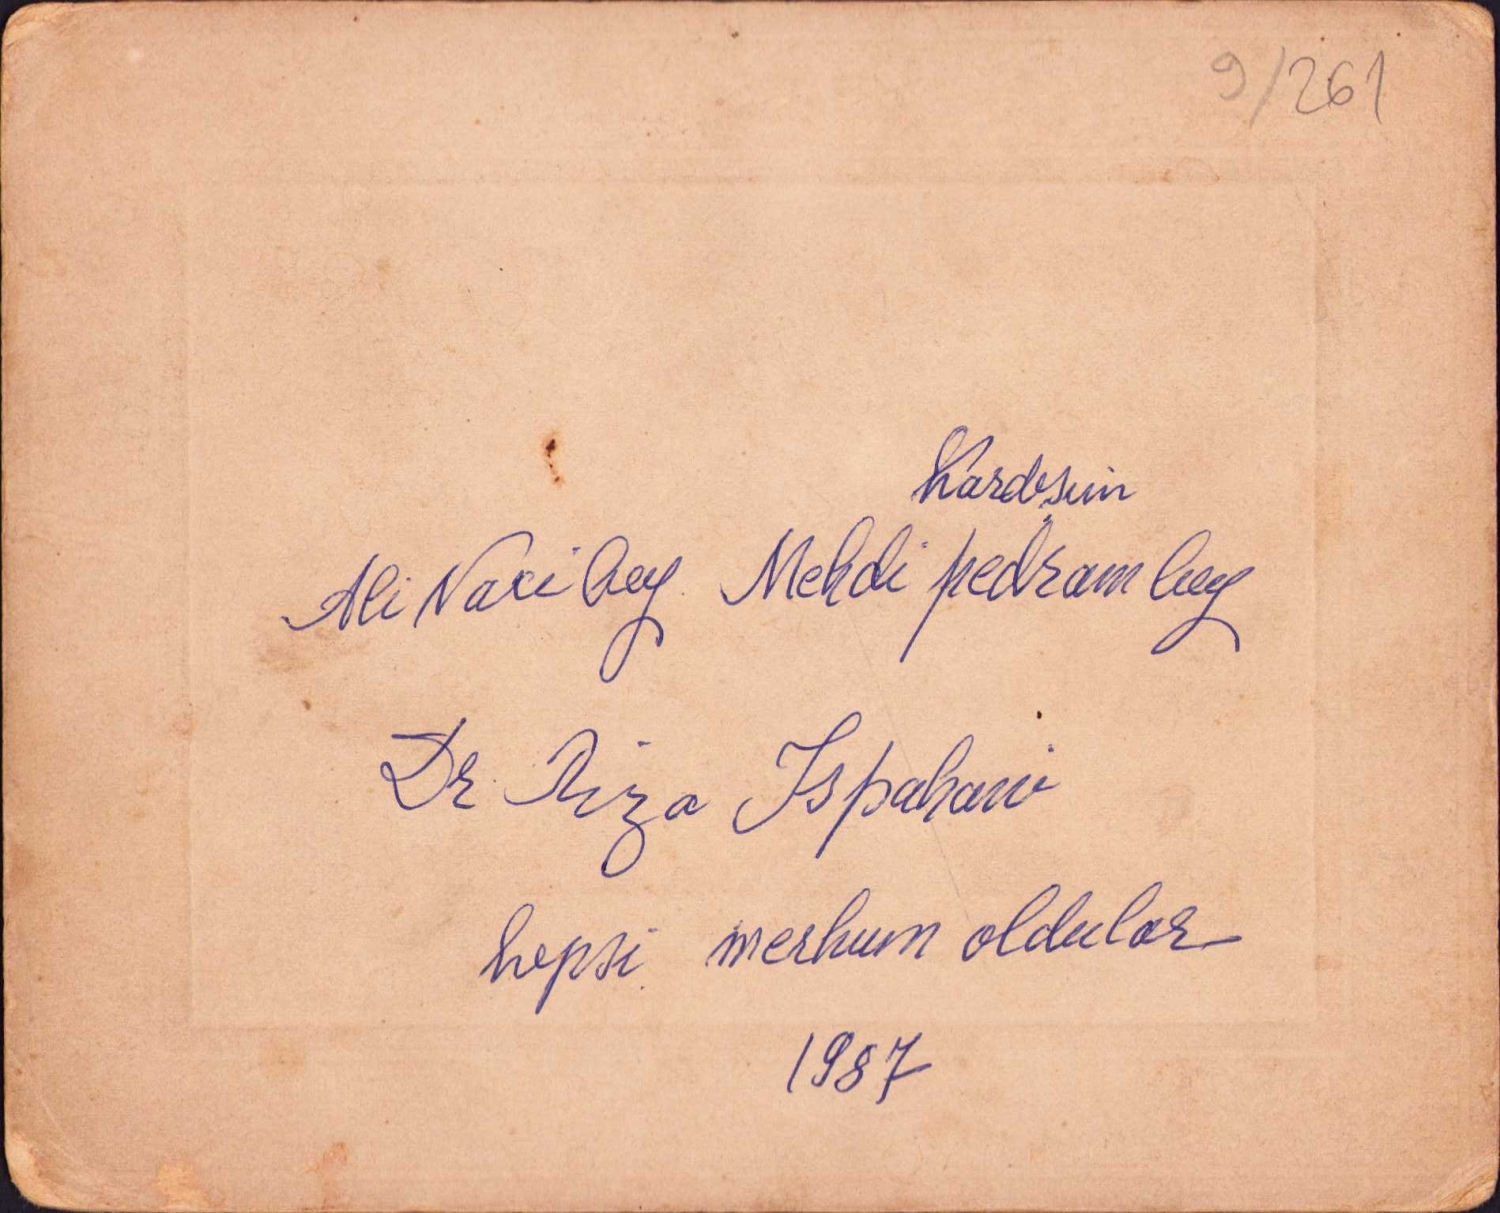 9/261
Kardeşim
Ali Naci bey Mehdi pedram bey
Dr Riza Ispahani
hepsi merhum oldular
1987